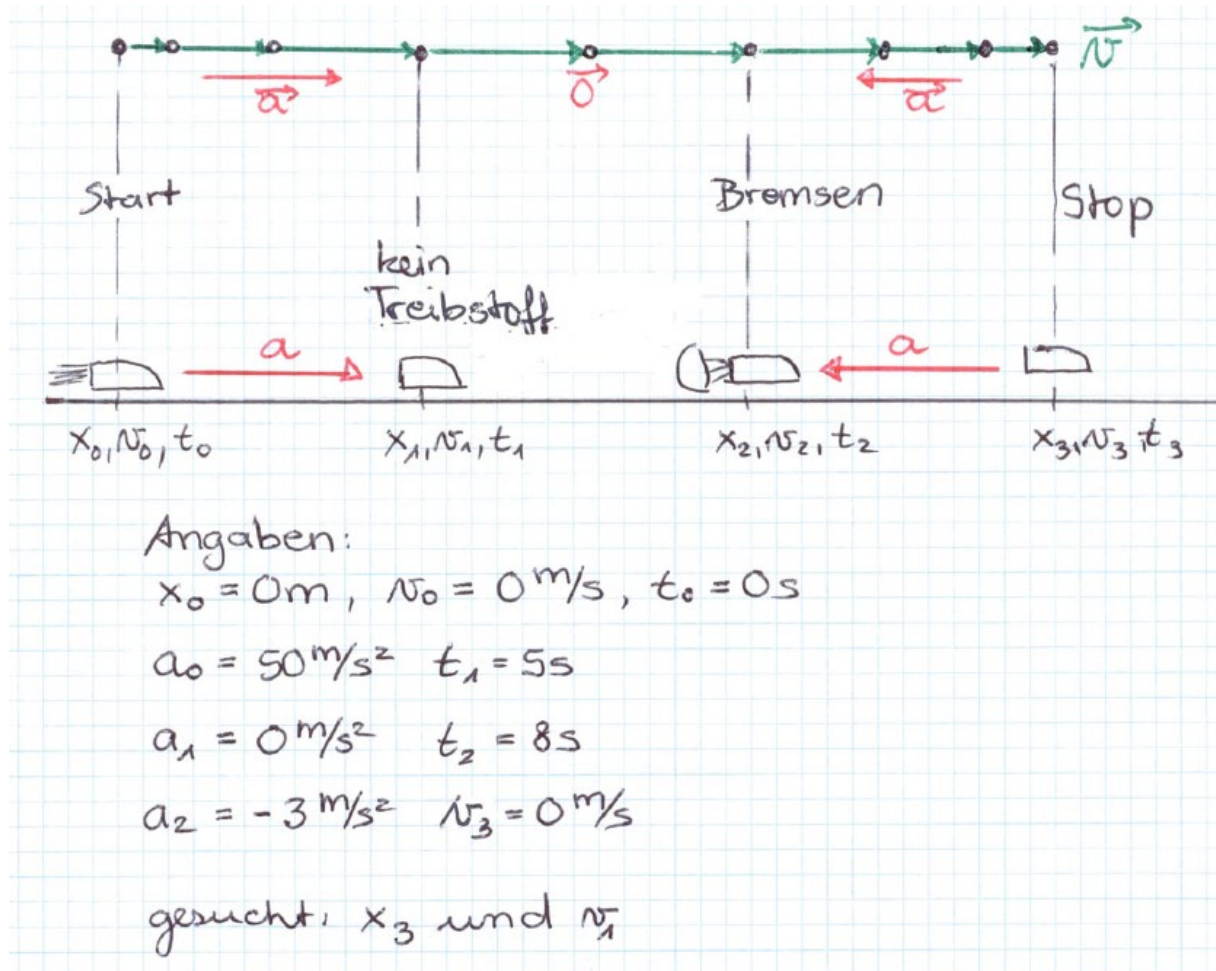 v⃗
a⃗ 0⃗ a⃗
Start Bremsen Stop
kein
Treibstoff
a a
x₀, v₀, t₀ x₁, v₁, t₁ x₂, v₂, t₂ x₃, v₃, t₃
Angaben:
x₀ = 0m, v₀ = 0 m/s, t₀ = 0s
a₀ = 50 m/s² t₁ = 5s
a₁ = 0 m/s² t₂ = 8s
a₂ = -3 m/s² v₃ = 0 m/s
gesucht: x₃ und v₁